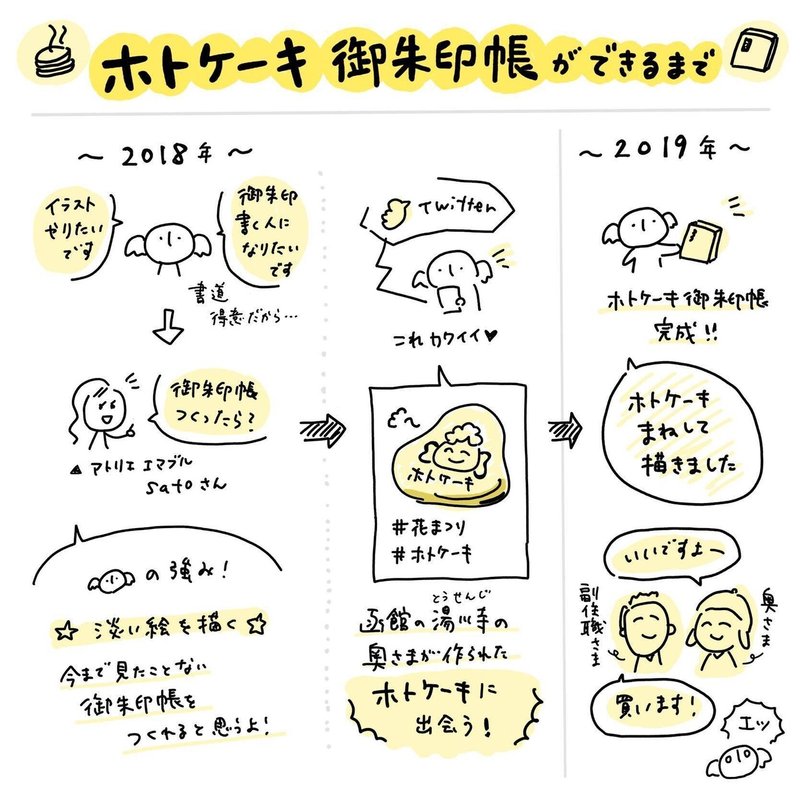 ホトケーキ御朱印帳ができるまで
〜2018年〜
イラスト
やりたい
です
御朱印
書く人に
なりたい
です
書道
得意だから…
御朱印帳
つくったら?
▲アトリエ エマブル
satoさん
の強み!
☆淡い絵を描く☆
今まで見たことない
御朱印帳を
つくれると思うよ!
Twitter
これカワイイ♥
ホトケーキ
#花まつり
#ホトケーキ
とうせんじ
函館の湯川寺の
奥さまが作られた
ホトケーキに
出会う!
〜2019年〜
ホトケーキ御朱印帳
完成!!
ホトケーキ
まねして
描きました
いいですよー
副住職さま
奥さま
買います!
エッ